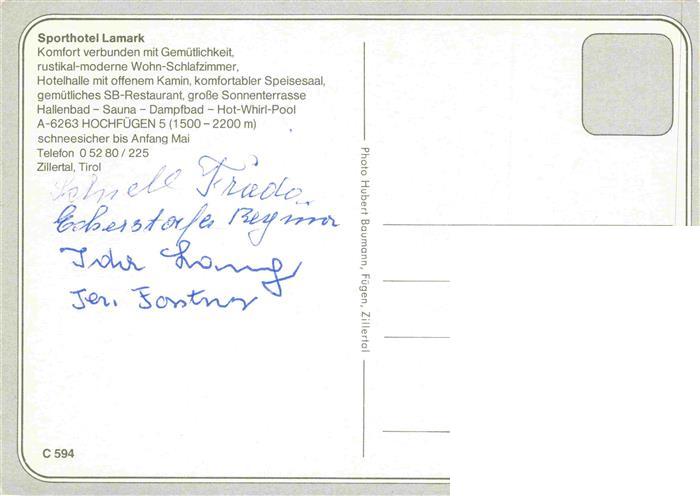 Sporthotel Lamark
Komfort verbunden mit Gemütlichkeit,
rustikal-moderne Wohn-Schlafzimmer,
Hotelhalle mit offenem Kamin, komfortabler Speisesaal,
gemütliches SB-Restaurant, große Sonnenterrasse
Hallenbad – Sauna – Dampfbad – Hot-Whirl-Pool
A-6263 HOCHFÜGEN 5 (1500 – 2200 m)
schneesicher bis Anfang Mai
Telefon 0 52 80 / 225
Zillertal, Tirol
Frieda
Lang
C 594
Photo Hubert Baumann, Fügen, Zillertal